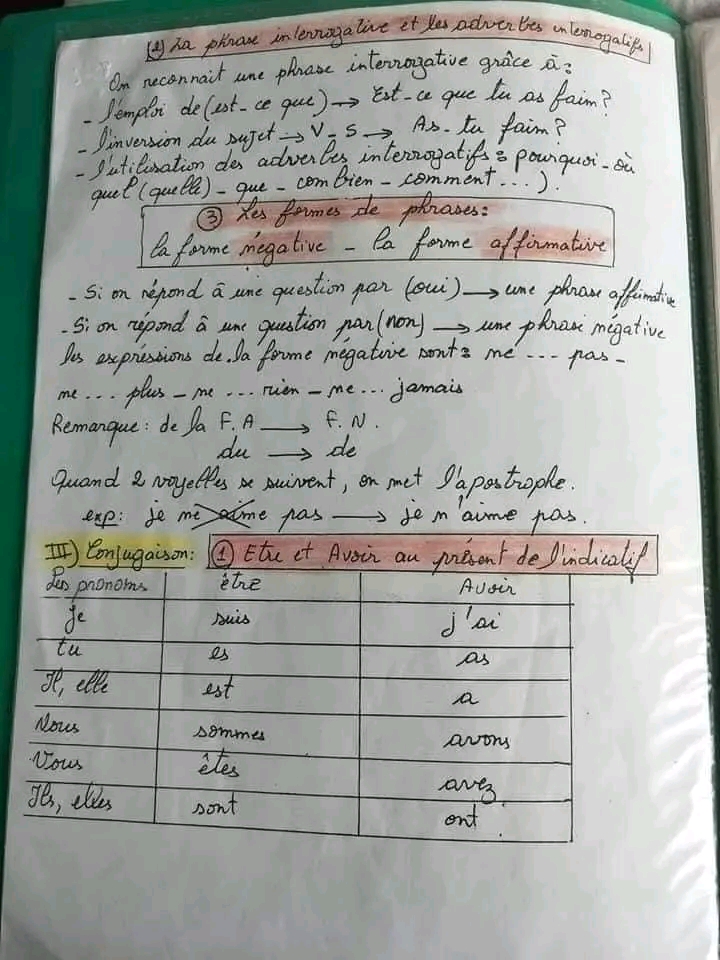 (2) La phrase interrogative et les adverbes interrogatifs
On reconnait une phrase interrogative grâce à :
- l'emploi de (est-ce que) → Est-ce que tu as faim ?
- l'inversion du sujet → V-S → As-tu faim ?
- l'utilisation des adverbes interrogatifs : pourquoi - où
quel (quelle) - que - combien - comment ... ).
③ Les formes de phrases :
la forme négative - la forme affirmative
- Si on répond à une question par (oui) → une phrase affirmative
- Si on répond à une question par (non) → une phrase négative
les expressions de la forme négative sont : ne ... pas -
ne ... plus - ne ... rien - ne ... jamais
Remarque : de la F.A → F.N.
du → de
Quand 2 voyelles se suivent, on met l'apostrophe.
exp : je ne aime pas → je n'aime pas.
III) Conjugaison : ① Etre et Avoir au présent de l'indicatif
Les pronoms être Avoir
Je suis j'ai
tu es as
Il, elle est a
Nous sommes avons
Vous êtes avez
Ils, elles sont ont